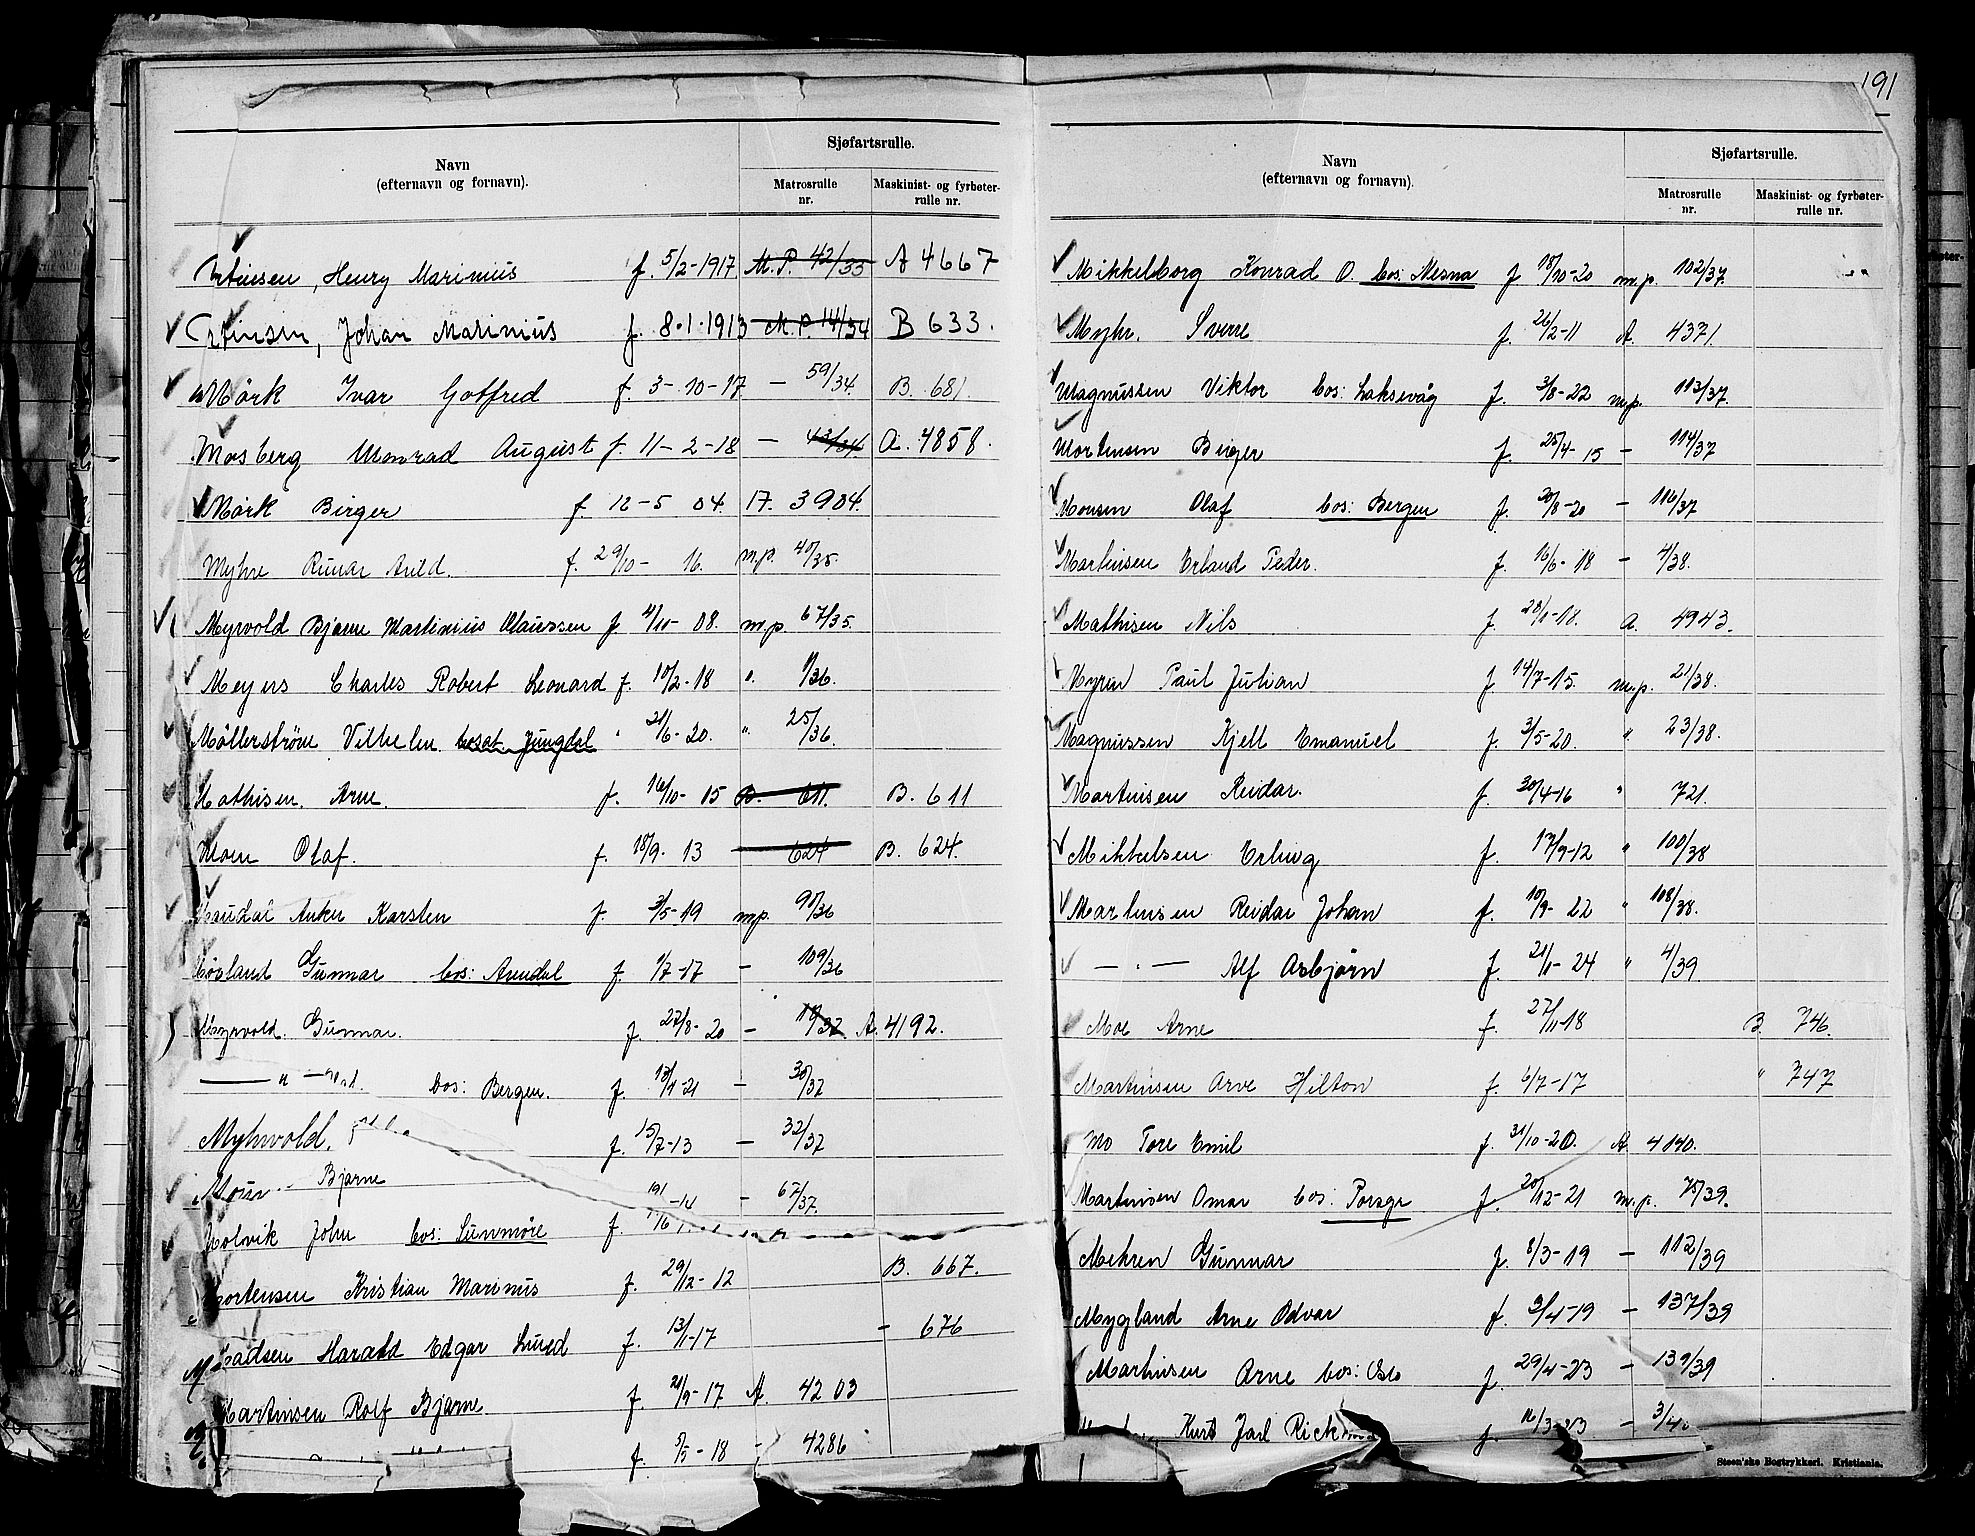 191
Navn
(efternavn og fornavn).
Sjøfartsrulle.
Matrosrulle nr.
Maskinist- og fyrbøter-rulle nr.
Henry Marinius f. 5/2-1917 M.P. 42/35 A 4667
Johan Marinius f. 8.1.1913 M.P. 14/34 B 633.
Mörk Ivar Gotfred f. 3-10-17 — 59/34. B. 681.
Mosberg Monrad August f. 11-2-18 — 43/34. A. 4858.
Mörk Birger f. 12-5 04. 3904.
Myhre Runar f. 29/10- 16. m.p. 40/35.
Myrvold Bjarne Martinius Olaussen f 4/11- 08. m.p. 67/35.
Meyers Charles Robert Leonard f. 10/2-18 " 1/36.
Möllerström Vilhelm 21/6-20. " 25/36.
Mathisen. Arne. f. 16/10- 15 B. 611. B. 611
Moen Olaf. f. 18/9. 13 624 B. 624.
Karsten f. 3/5-19 m.p. 90/36
Gunnar bos: Arendal f. 1/7-17 — 109/36
Myrvold. Gunnar. f. 27/8-20 — A. 4192.
— " — bos: Bergen. f. — 30/37
Myhrvold. f. 15/7-13 — 32/37
Bjarne — 67/37.
Molvik John bos: Sunmöre f.
Mortensen Kristian Marinus f. 29/12-12 B. 667.
Madsen Harald Edgar f. 13/1-17 — 676
Martinsen Rolf Bjarne. f. 21/9-17 A. 4203
f. 5/5-18 - 4286
Navn
(efternavn og fornavn).
Sjøfartsrulle.
Matrosrulle nr.
Maskinist- og fyrbøter-rulle nr.
Mikkelborg Konrad O. bos: Nesna f 18/10-20 m.p. 102/37.
Myhr. Sverre f. 26/2-11 A. 4371.
Magnussen Viktor bos: Laksevåg f. 3/8-22 m.p. 113/37.
Mortensen Birger f. 25/4-15 — 114/37
Monsen Olaf bos: Bergen f. 20/8-20 — 116/37
Martinsen Erland Peder. f. 16/6-18 — 4/38.
Mathisen Nils f. 28/1-18. A. 4943.
Myren Paul Julian f 14/7-15. m.p. 21/38.
Magnussen Kjell Emanuel f. 3/5-20. " 23/38.
Martinsen Reidar. f. 30/4-16 " 721.
Mikkelsen Erling f. 17/9-12 " 100/38
Martinsen Reidar Johan f. 10/9-22 " 108/38.
— " — Alf Asbjörn f. 21/1-24 " 4/39
Moe Arne f. 27/11-18 B. 746.
Martinsen Arve Hilton f. 6/7-17 " 747
Mo Tore Emil f. 31/10-20. A. 4140.
Martinsen Omar bos: Porsgr f. 20/12-21 m.p. 75/39.
Mehren Gunnar f. 8/3-19 — 112/39
Mygland Arne Odvar f. 2/4-19 — 137/39
Martinsen Arne bos: Oslo f. 29/4-23 — 139/39
Kurt Jarl f. — 3/40
Steen'ske Bogtrykkeri. Kristiania.